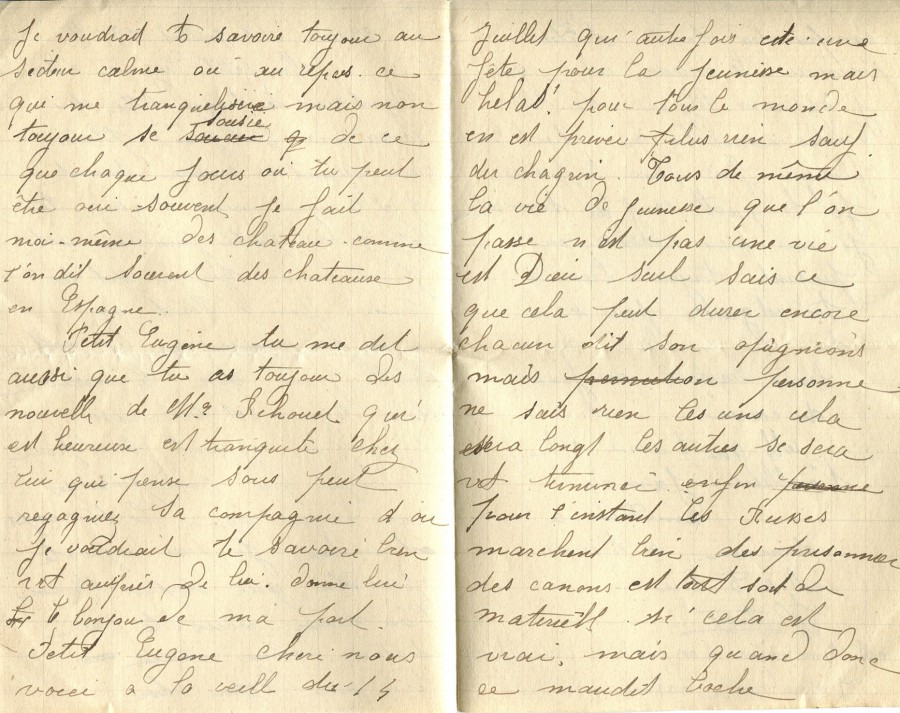 Je voudrait te savoire toujour au
secteur calme ou au repos. ce
qui me tranquelisire mais non
toujour se sousie de ce
que chaque jours ou tu peut
être oui souvent je fait
moi-même des chateau comme
l'on dit souvent des chateause
en Espagne.
Petit Eugène tu me dit
aussi que tu as toujour des
nouvelle de Mr qui
est heureux est tranquite chez
lui qui pense sous peut
regagniez sa compagnie d ou
Je voudrait te savoire bien
vst auprès de lui. donne lui
le bonjou de ma part.
Petit Eugene cheri nous
voici a la veill du 14
Juillet qu'autre fois été une
fête pour la jeunesse mais
helas! pour tous le monde
en est privee plus rien sauf
du chagrin. Tous de même
la vie de jeunesse que l'on
passe n'est pas une vie
est Dieu seul sais ce
que cela peut durer encore
chacun dit son opignions
mais personne
ne sais rien les uns cela
sera longt les autres se sera
vst terminé enfin
pour l'instant les Russes
marchent bien des prisonnier
des canons est tout sort de
materiells si cela est
vrai, mais quand donc
ce maudit boche